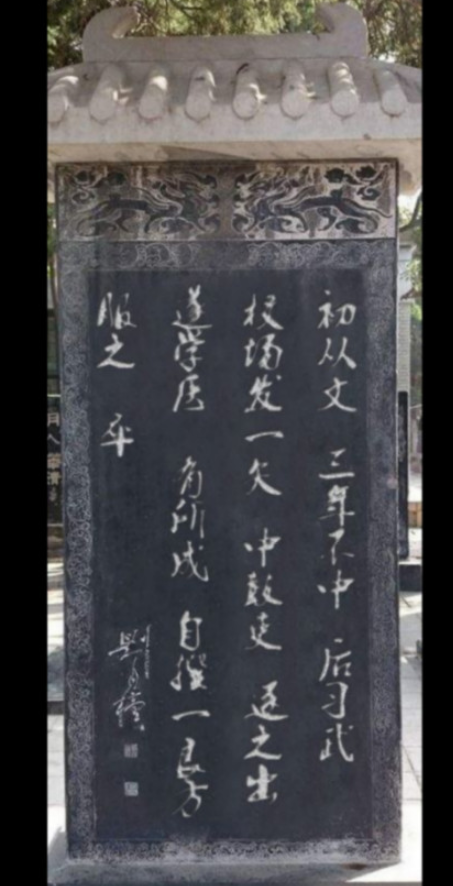 初从文 三年不中 后习武
校场发一矢 中鼓吏 逐之出
遂学医 有所成 自撰一良方
服之 卒
劉自櫝